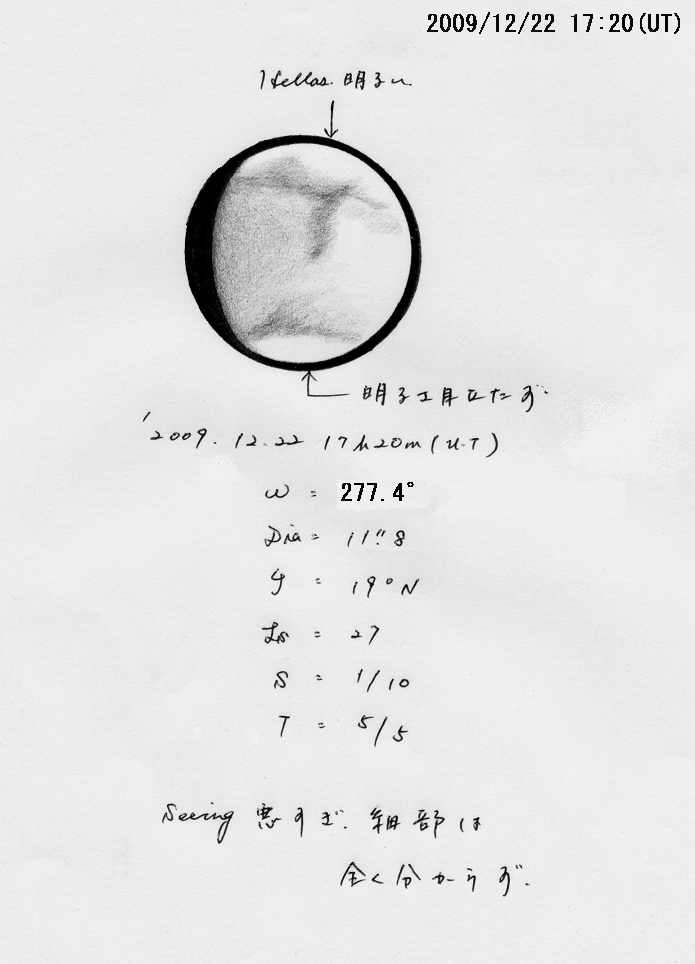 2009/12/22 17:20(UT)
Hellas. 明るい
明るさ目立たず.
'2009. 12. 22 17h20m (U.T)
ω = 277.4°
Dia = 11".8
φ = 19°N
Ls = 27
S = 1/10
T = 5/5
Seeing 悪すぎ. 細部は
全く分からず.